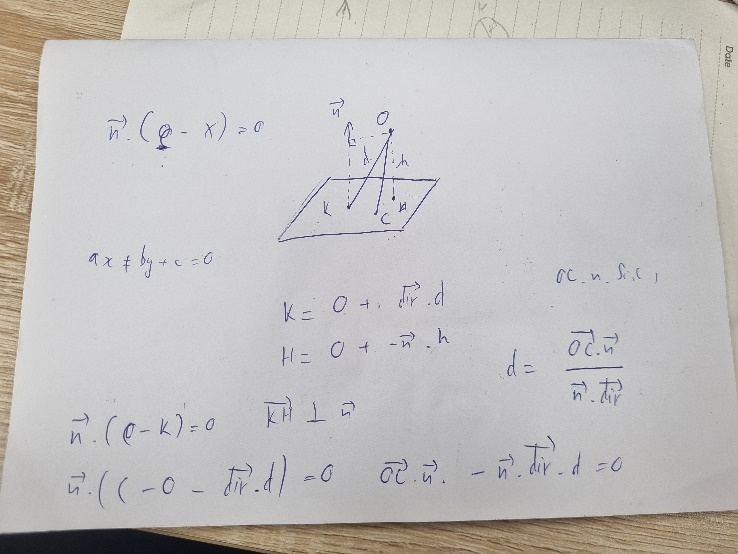 Date
n⃗ . (C - X) = 0
n⃗
O
d
h
K
C
H
ax + by + c = 0
K = O + dir⃗ . d
H = O + -n⃗ . h
d = OC⃗ . n⃗ / n⃗ . dir⃗
n⃗ . (C - K) = 0 KH⃗ ⊥ n⃗
n⃗ . (C - O - dir⃗ . d) = 0 OC⃗ . n⃗ . - n⃗ . dir⃗ . d = 0